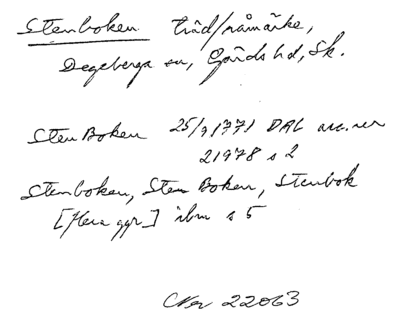 Stenboken träd/råmärke,
Degeberga sn, Gärds hd, Sk.
Sten Boken 25/9 1771 DAL acc.nr
21978 s 2
Stenboken, Sten Boken, Stenbok
[flera ggr] ibm s 5
22063